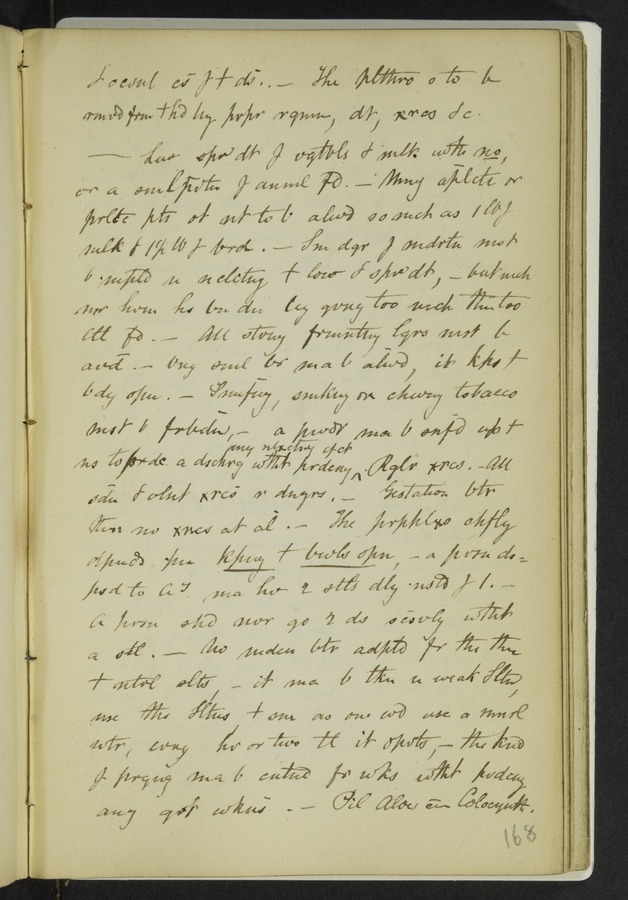 & ocsnl cs f + ds.. — The plthro o to b
rmvd frm thd by prpr rgmn, dt, xrcs &c.
— Luv spr dt f vgtbls & mlk wth no,
or a sml prtn f anml fd. — Mny aplctc or
prltc pts ot nt to b alwd so mch as 1 lb f
mlk & 1½ lb f brd. — Sm dgr f mdrtn mst
b
nor hvm hs bn dn by gvng too mch thn too
ltl fd. — All strng frmntng lqrs mst b
avd. — Vry sml br ma b alwd, it kps +
bdy opn. — Snuffing, smkng or chwng tobacco
mst b frbdn, — a pwdr ma b snfd up +
ns to prdc a dschrg wtht prdcng any nrctc efct. Rglr xrcs. — All
sdn & vlnt xrcs r dngrs. — Gestation btr
thn no xrcs at al. — The prphlxs chfly
dpnds upn kpng + bwls opn, — a prsn ds=
psd to a ma hv 2 stls dly nstd f 1. —
A prsn shd nvr go 2 ds scsvly wtht
a stl. — No mdcn btr adptd fr ths thn
+ ntrl slts, — it ma b tkn n weak sltn,
use ths sltns + sm as one wd use a mnrl
wtr, evry hr or two tl it oprts, — ths knd
f prgng ma b cntnd fr wks wtht prdcng
any grt wkns. — Pil Aloe cum Colocynth.
168